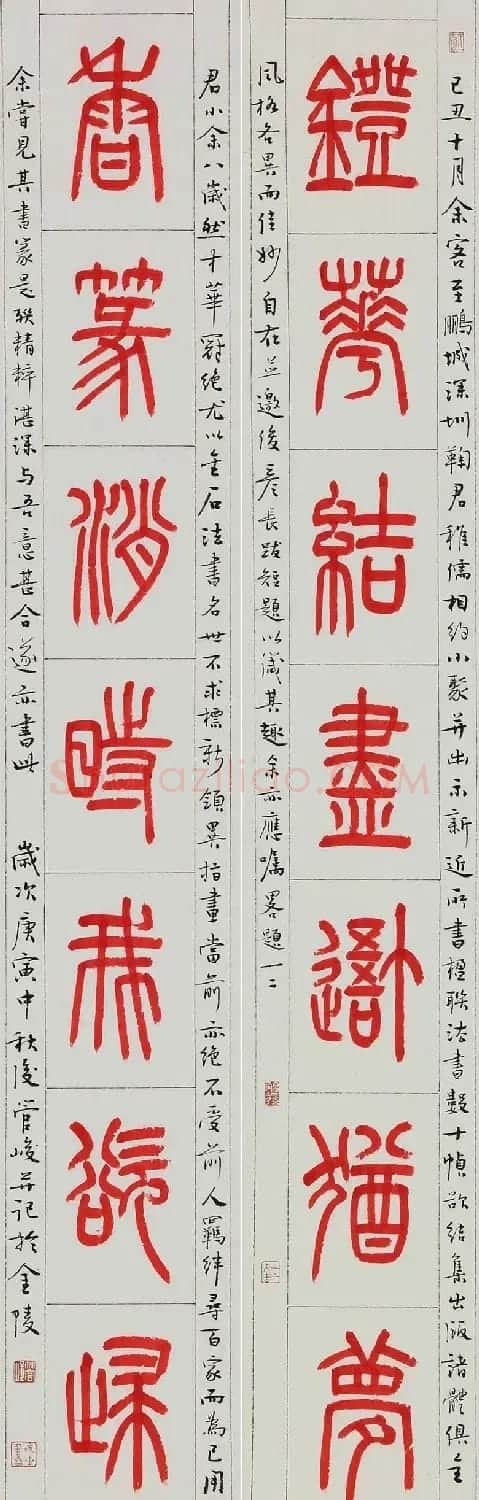 己丑十月余客至鵬城深圳鞠君稚儒相約小聚并出示新近所書楹聯法書數十幀欲結集出版諸體俱全
鐙華結盡吾猶夢
風格各異而佳妙自在並邀後彥長跋短題以識其趣余亦應囑畧題一二
君小余八歲然才華冠絕尤以金石法書名世不求標新領異指畫當前亦絕不受前人羈絆尋百家而為己用
香篆消時我欲歸
余嘗見其書篆是聯精粹湛深与吾意甚合遂亦書此 歲次庚寅中秋後管峻并記於金陵